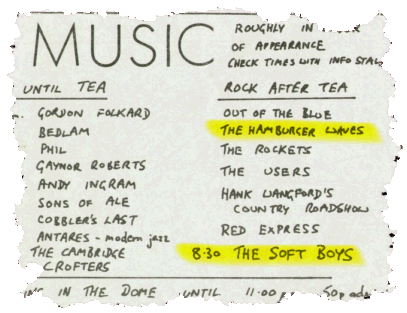 MUSIC
ROUGHLY IN
OF APPEARANCE
CHECK TIMES WITH INFO
UNTIL TEA
GORDON FOLKARD
BEDLAM
PHIL
GAYNOR ROBERTS
ANDY INGRAM
SONS OF ALE
COBBLER'S LAST
ANTARES - modern jazz
THE CAMBRIDGE
CROFTERS
ROCK AFTER TEA
OUT OF THE BLUE
THE HAMBURGER WAVES
THE ROCKETS
THE USERS
HANK WANGFORD'S
COUNTRY ROADSHOW
RED EXPRESS
8:30 THE SOFT BOYS
IN THE DOME UNTIL 11:00 50p